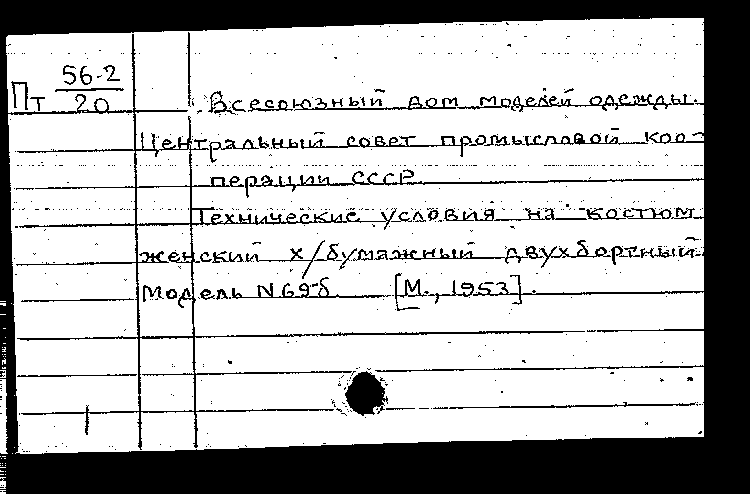 Пт 56-2/20
Всесоюзный дом моделей одежды.
Центральный совет промысловой коо-
перации СССР.
Технические условия на костюм
женский х/бумажный двухбортный.
Модель N 69-б. [М., 1953].